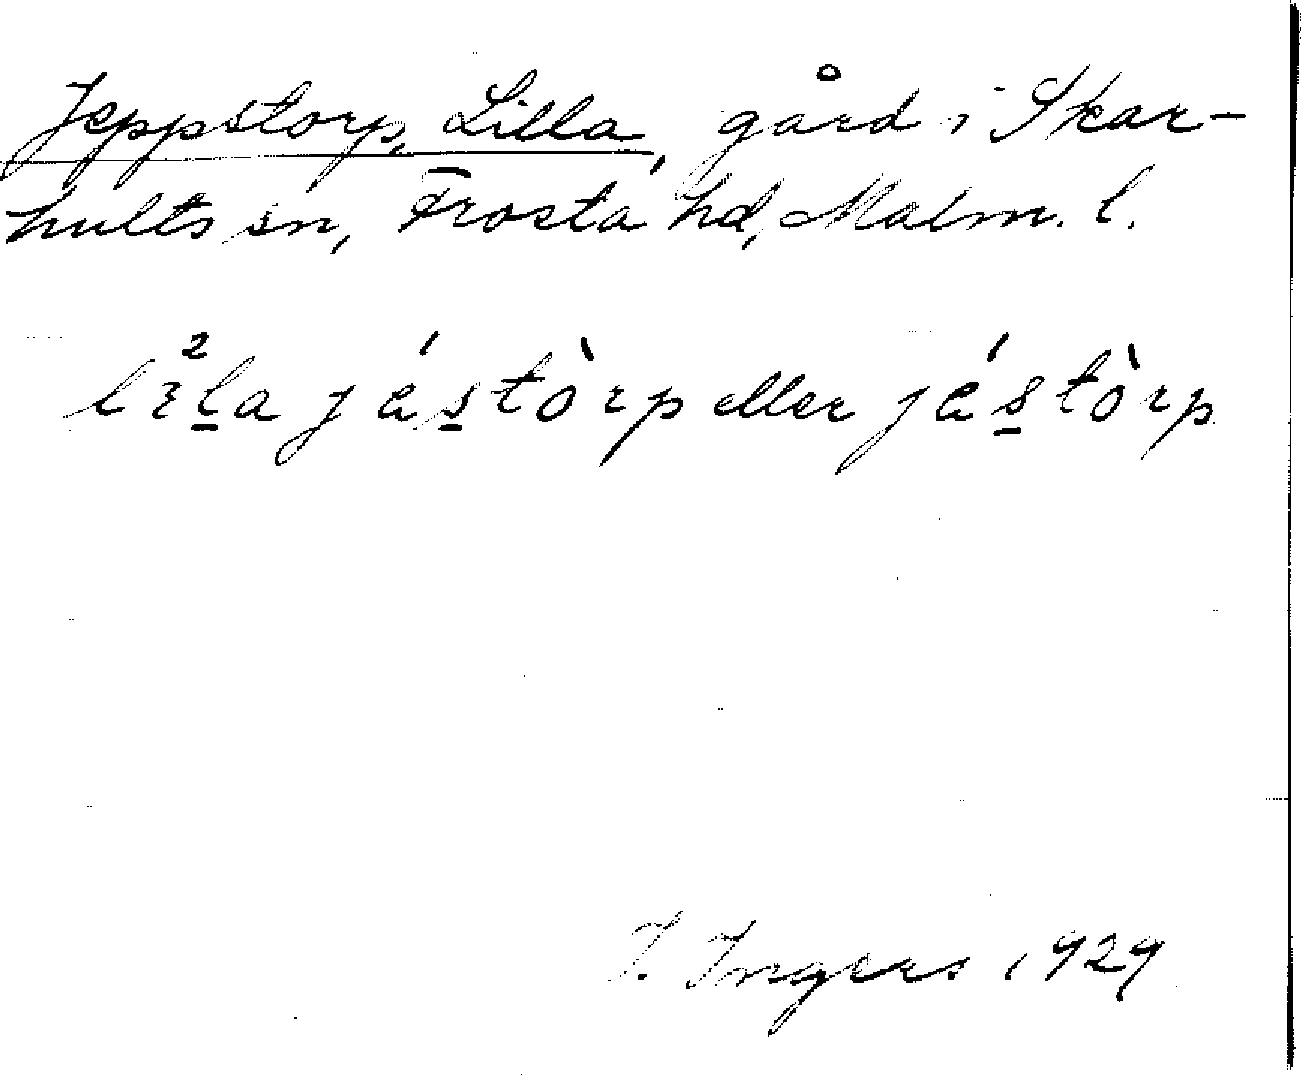 Jeppstorp, Lilla, gård i Skar-
hults sn, Frosta hd, Malm. l.
lɩ²l̲a jás̲tòrp eller jás̲tòrp
I. Ingers 1929